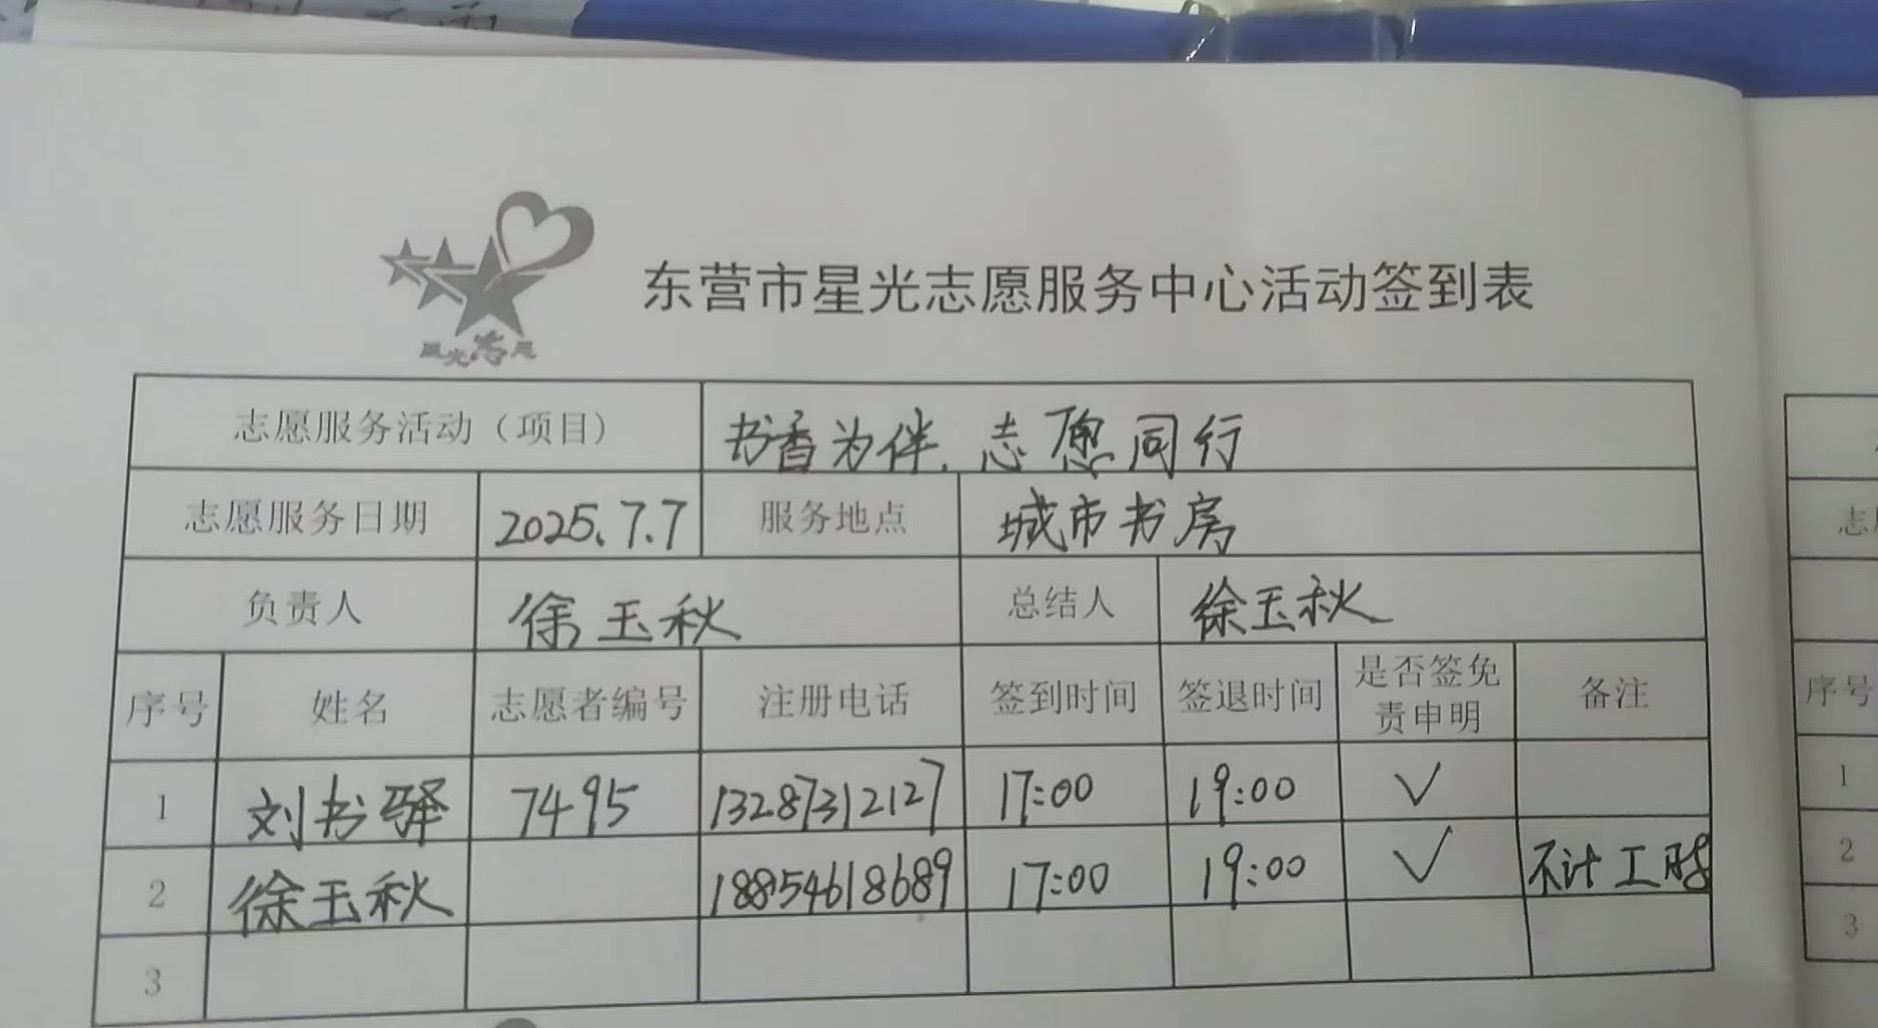 星光志愿
东营市星光志愿服务中心活动签到表
志愿服务活动（项目） 书香为伴.志愿同行
志愿服务日期 2025.7.7 服务地点 城市书房
负责人 徐玉秋 总结人 徐玉秋
序号 姓名 志愿者编号 注册电话 签到时间 签退时间 是否签免责申明 备注
1 刘书驿 7495 13287312127 17:00 19:00 √
2 徐玉秋 18854618689 17:00 19:00 √ 不计工时
3
序号
1
2
3